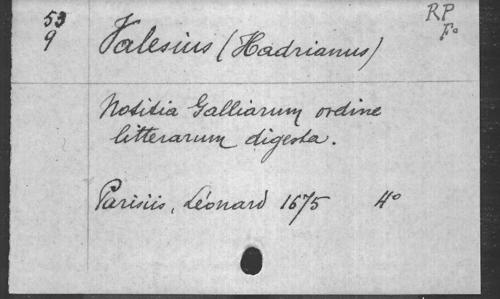 53
9
RP
Fo
Valesius (Hadrianus)
Notitia Galliarum ordine
litterarum digesta.
Parisiis, Léonard 1675 4o